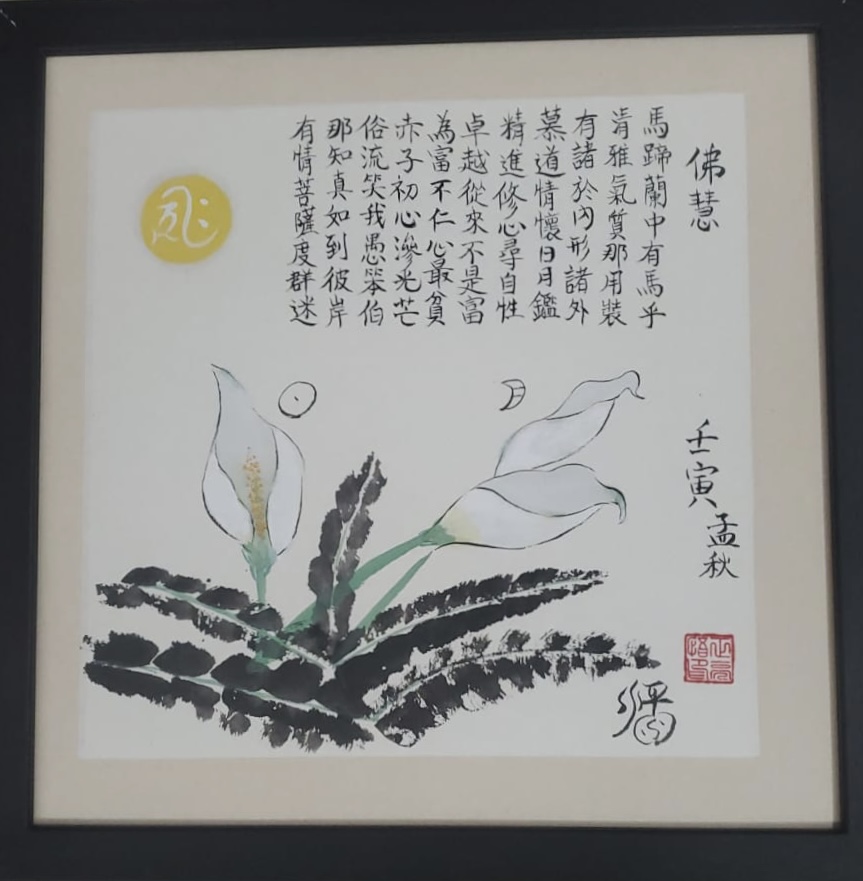 佛慧
馬蹄蘭中有馬乎
肯雅氣質那用裝
有諸於內形諸外
慕道情懷日月鑑
精進修心尋自性
卓越從來不是富
為富不仁心最貧
赤子初心滲光芒
俗流笑我愚笨伯
那知真如到彼岸
有情菩薩度群迷
壬寅孟秋